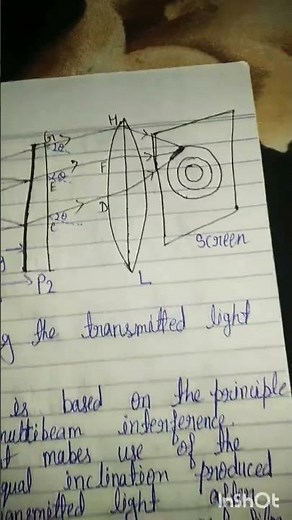 H
G
2θ
F
2θ
E
D
2θ
C
Screen
P2
L
g the transmitted light
is based on the principle
multibeam interference.
t makes use of the
qual inclination produced
ansmitted light after
InShot